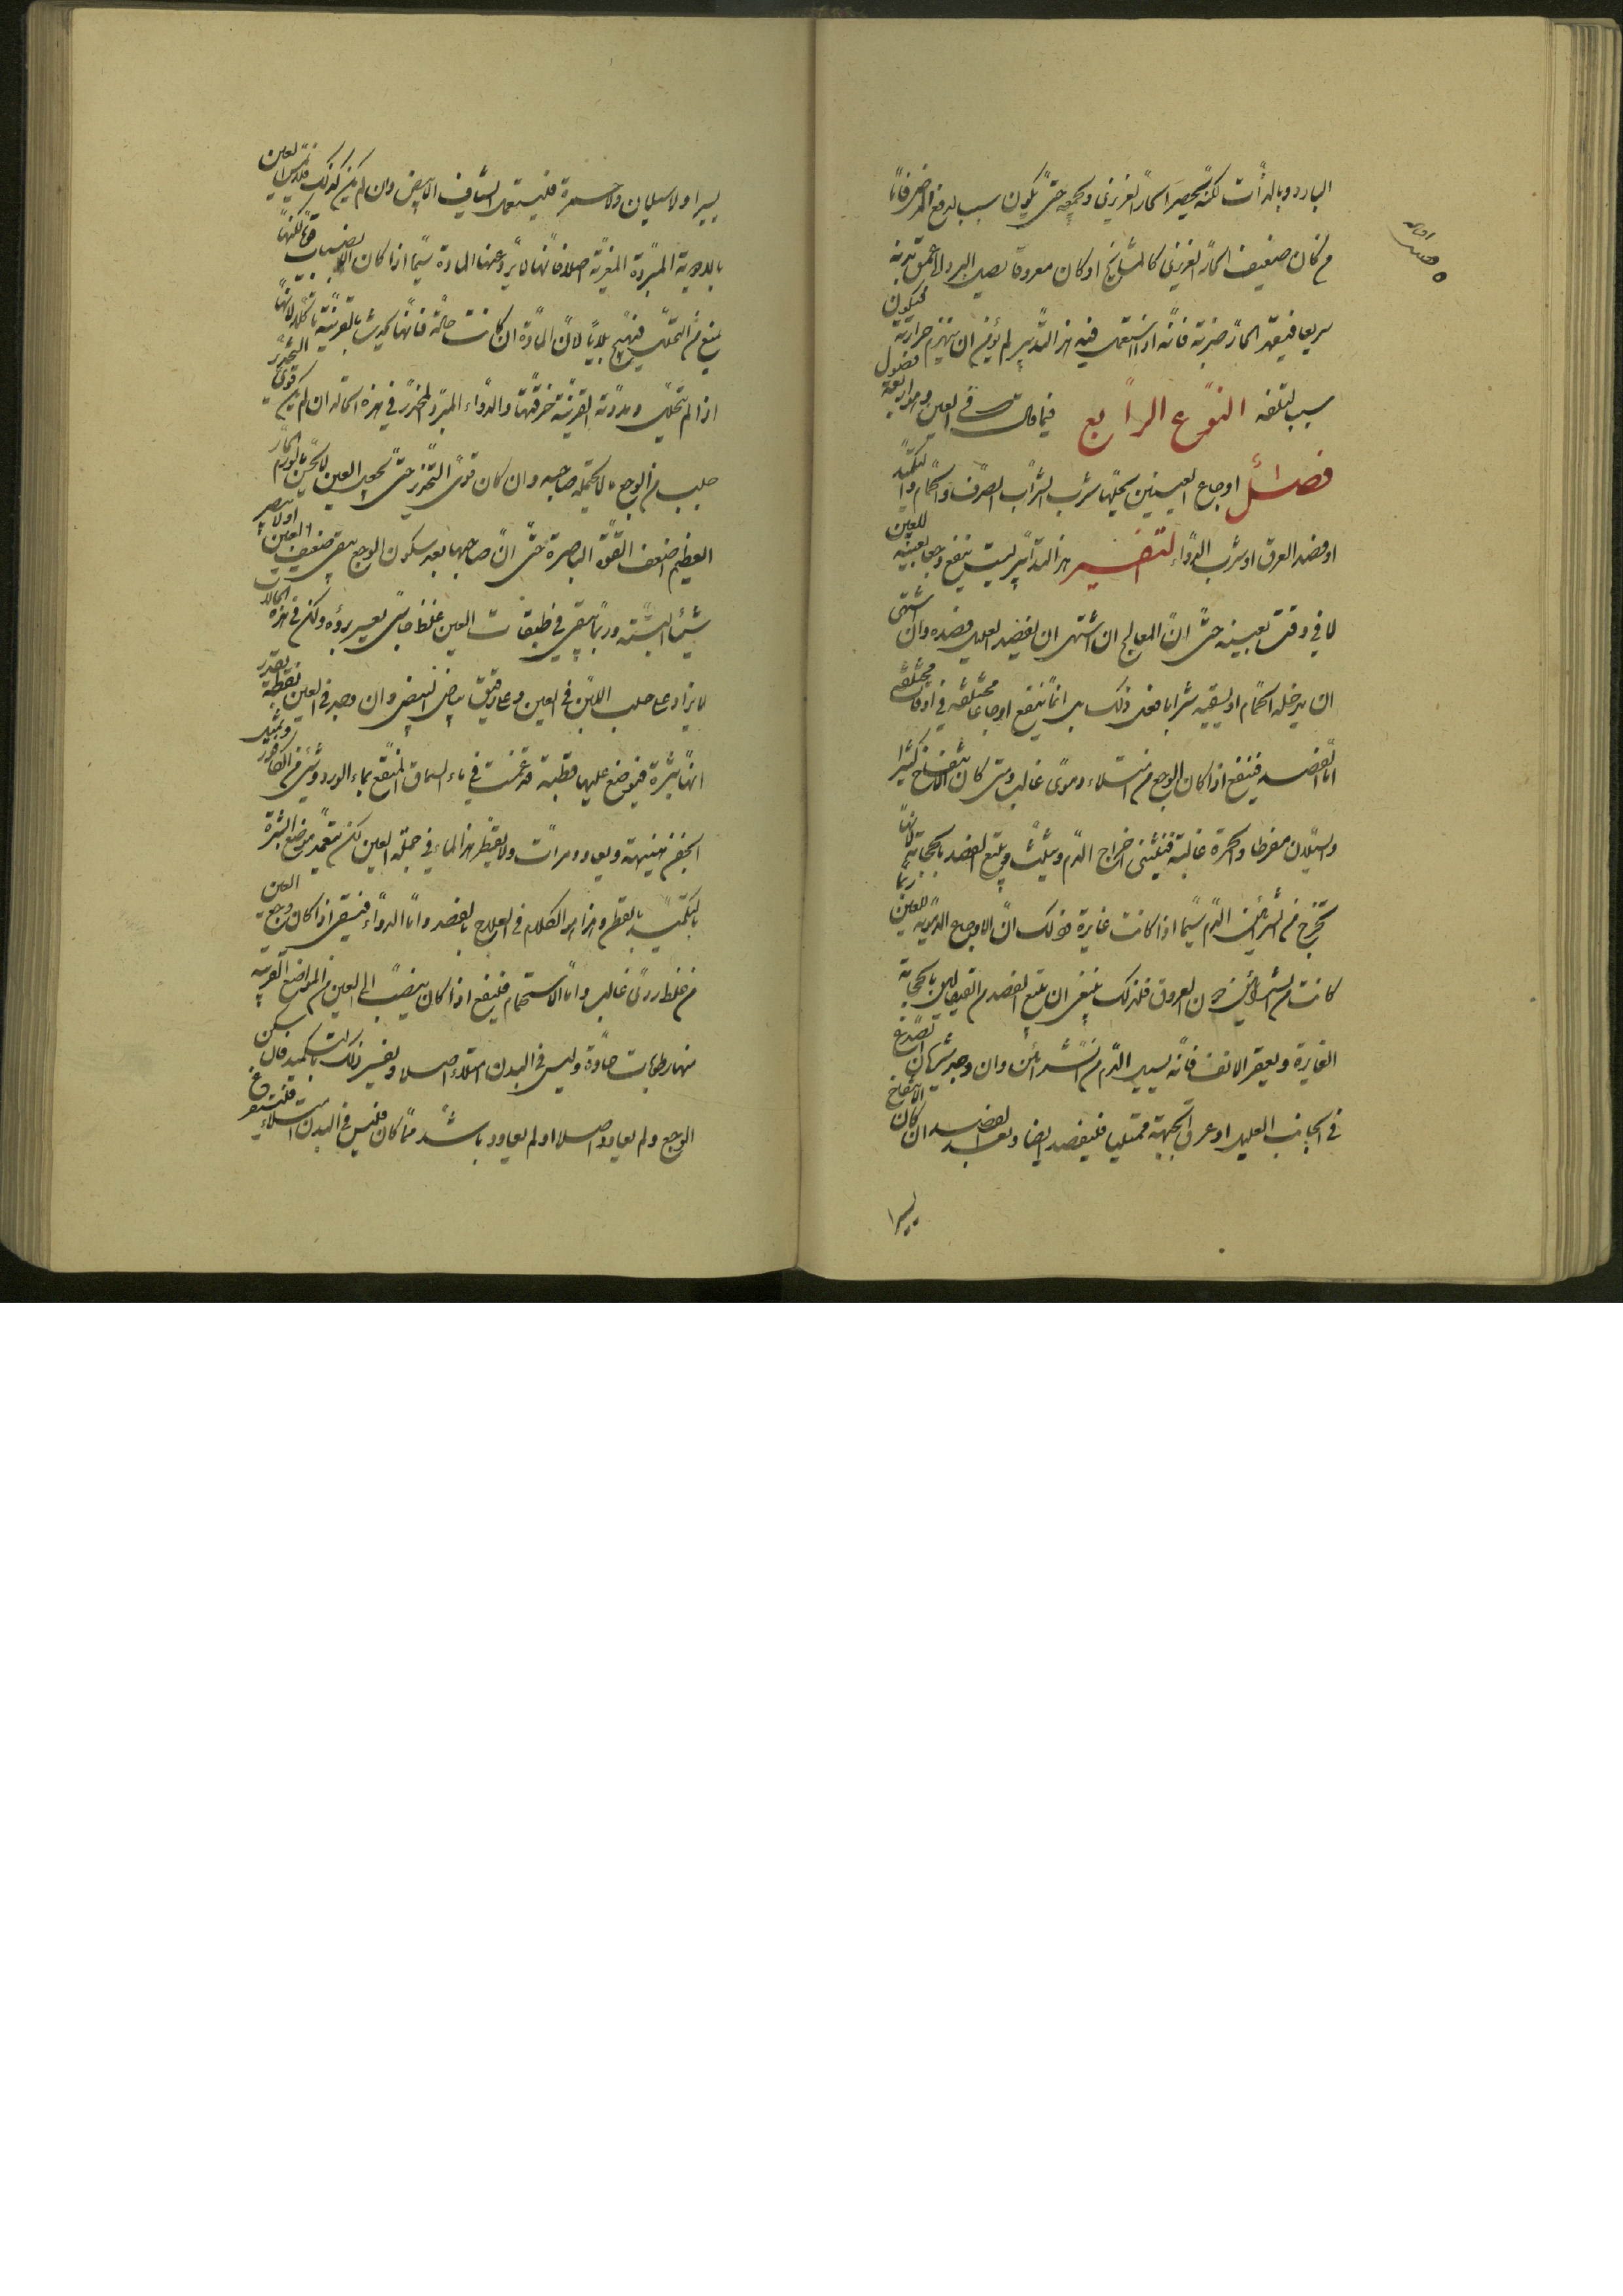 البارد وبالذات لكنه يحصر الحار الغريزى ويجمعه حتى يكون سبب لدفع المرض فاما
من كان ضعيف الحار الغريزى كالمشايخ او كان معروقا يصل البرد الى عمق بدنه
سريعا فيقهر الحار ضربة فانه اذا استعمل فيه هذا التدبير لم يؤمن ان ينهزم حرارته فيكون
سبب لتلفه النوع الرابع فيما قال فى العين وهو اربعة فصول
فصل اوجاع العينين يحلها شرب الشراب الصرف والحمام والتكميد
او فصد العرق او شرب الدواء التفسير هذا التدابير ليست ينفع وجعا بعينه للعين
لا فى وقت بعينه حتى ان المعالج ان اشتهى ان يفصد العليل فصده وان اشتهى
ان يدخله الحمام او يسقيه شرابا فعل ذلك بل انما ينفع اوجاعا مختلفة فى اوقات مختلفة
اما الفصد فينفع اذا كان الوجع من امتلاء دموى غالب ومتى كان الانتفاخ كثيرا
والسيلان مفرطا والحمرة غالبة فيثنى اخراج الدم ويثلث ويتبع الفصد بالحجامة لانها
تخرج من الشرائين الدم سيما اذا كانت غايرة وذلك ان الاوجاع الدموية للعين ربما
كانت من الشرائين دون العروق فلذلك ينبغى ان يتبع الفصد من القيفال بالحجامة
الغايرة وبعقر الانف فانه يسيل الدم من الشرائين وان وجد شريان الصدغ
فى الجانب العليل او عرق الجبهة ممتليا فليفصد ايضا وبعد الفصد ان كان الانتفاخ
يسيرا
يسيرا ولا سيلان ولا حمرة فليستعمل الشياف الابيض وان لم يكن كذلك فلا تمس العين
بالادوية المبردة المغرية اصلا فانها لا تردع عنها المادة سيما اذا كان الانصباب قويا لكنها
تمنع من التحلل فتهيج بلايا لان المادة ان كانت حادة فانها يحدث بالقرنية تاكلا لانها
اذا لم يتحلل ومددت القرنية خرقتها والدواء المبرد المخدر فى هذه الحالة ان لم يكن قوى التخدير
جلب من الوجع ما لا يحتمله صاحبه وان كان قوى التخدير حتى يجعل العين لا تحس بالورم الحار
العظيم اضعف القوة الباصرة حتى ان صاحبها بعد سكون الوجع يبقى ضعيف العين او لا يبصر
شيئا البتة وربما يبقى فى طبقات العين غلظ جاسى يعسر برؤه ولكن فى هذه الحالات
لا يزاد على حلب اللبن فى العين ومعا رقيق بياض البيض وان وجد فى العين نقطة بقدر
انها بثرة فيوضع عليها قطنة قد غمست فى ماء السماق المنقع بماء الورد وشئ من الكافور ويشد
الجفن هنيهة ويعاود مرات ولا يقطر هذا الماء فى جملة العين لكن يتعمد موضع البثرة
بالتكميد بالقطن وهذا هو الكلام فى العلاج بالفصد واما الدواء فيسقى اذا كان وجع العين
من غلظ ردى غالب واما الاستحمام فينفع اذا كان ينصب الى العين من المواضع القريبة
منها رطوبات حادة وليس فى البدن امتلاء اصلا وتفسير ذلك بالتكميد فان سكن
الوجع ولم يعاود اصلا او لم يعاود باشد مما كان فليس فى البدن امتلاء فليستفرغ